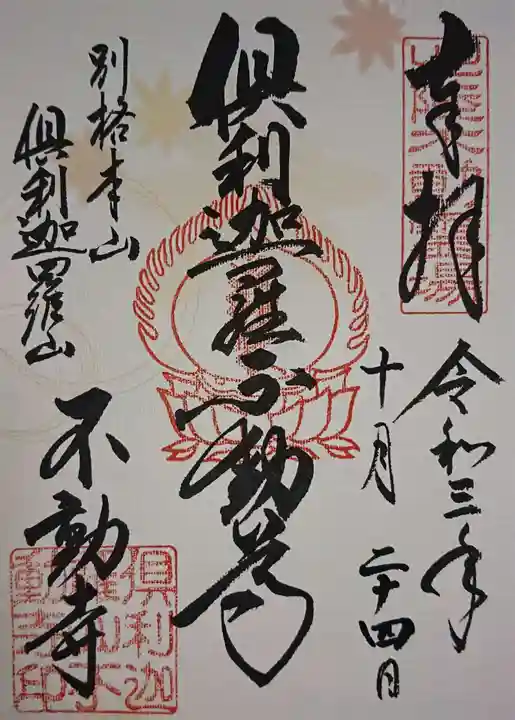 奉拝
令和三年
十月二十四日
倶利迦羅不動尊
別格本山
倶利迦羅山
不動寺
倶利迦
羅山不
動寺印